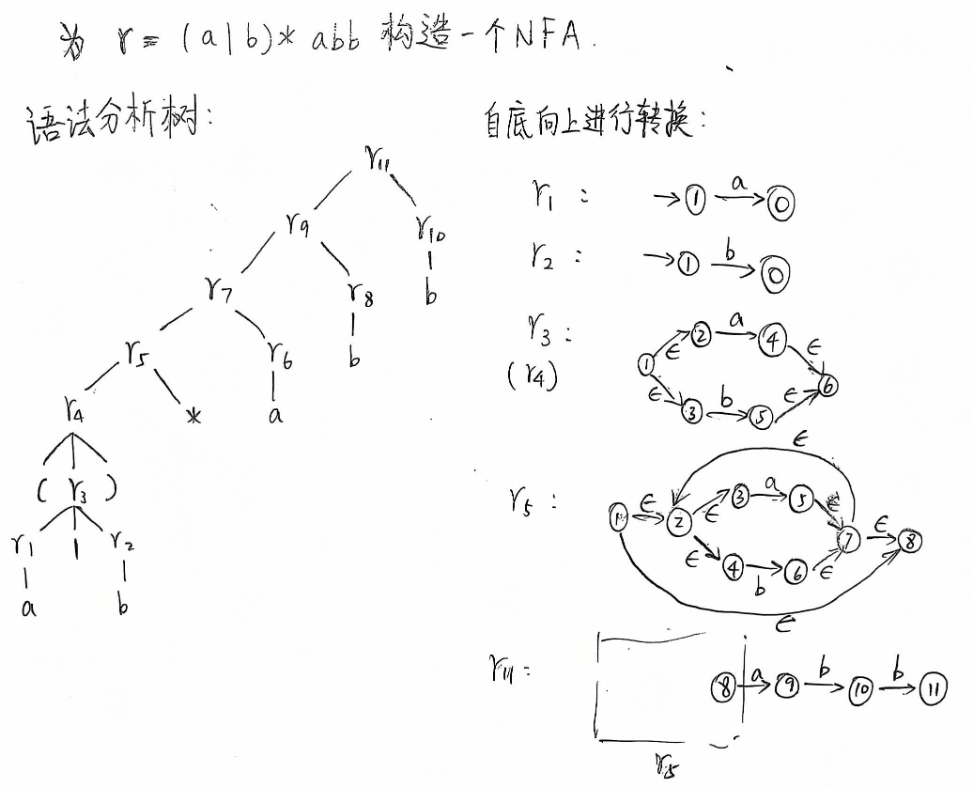 为 r = (a|b)* abb 构造一个NFA.
语法分析树:
r11
r9
r10
r7
r8
b
r5
r6
b
r4
*
a
( r3 )
r1 | r2
a
b
自底向上进行转换:
r1 : 1 a 0
r2 : 1 b 0
r3 :
(r4)
1 ϵ 2 a 4 ϵ 6
ϵ 3 b 5 ϵ
r5 :
ϵ
1 ϵ 2 ϵ 3 a 5 ϵ 7 ϵ 8
ϵ 4 b 6 ϵ
ϵ
r11 : 8 a 9 b 10 b 11
r5